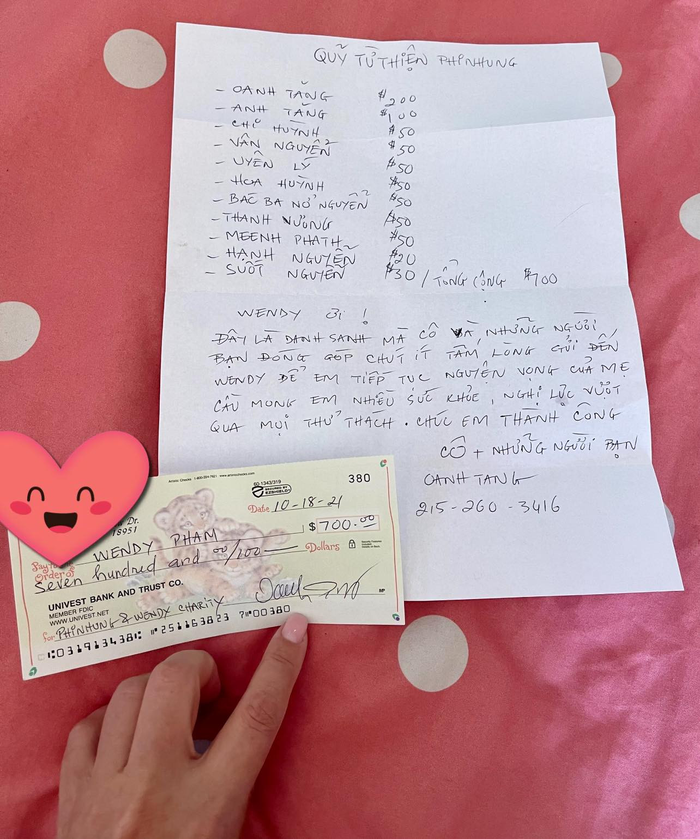 QUỸ TỪ THIỆN PHINHUNG
- OANH TĂNG $200
- ANH TĂNG $100
- CHI HUỲNH $50
- VÂN NGUYỄN $50
- UYÊN LÝ $50
- HOA HUỲNH $50
- BÁC BA NỞ NGUYỄN $50
- THANH VƯƠNG $50
- MEENH PHATH $50
- HẠNH NGUYỄN $20
- SUỐT NGUYỄN $30 / TỔNG CỘNG $700
WENDY ƠI !
ĐÂY LÀ DANH SANH MÀ CÔ VÀ NHỮNG NGƯỜI
BẠN ĐÓNG GÓP CHÚT ÍT TẤM LÒNG GỬI ĐẾN
WENDY ĐỂ EM TIẾP TỤC NGUYỆN VỌNG CỦA MẸ
CẦU MONG EM NHIỀU SỨC KHỎE, NGHỊ LỰC VƯỢT
QUA MỌI THỬ THÁCH. CHÚC EM THÀNH CÔNG
CÔ + NHỮNG NGƯỜI BẠN
OANH TANG
215-260-3416
Artistic Checks 1-800-264-7621 www.artisticchecks.com
60-1343/319
380
SECURED BY EZSHIELD
Dr.
18951
Date 10-18-21
Pay to the Order of WENDY PHAM $700.00
Seven hundred and 00/100 Dollars
UNIVEST BANK AND TRUST CO.
MEMBER FDIC
WWW.UNIVEST.NET
for PHINHUNG & WENDY CHARITY
MP
⑆031913438⑆ ⑈251163823 7⑈00380